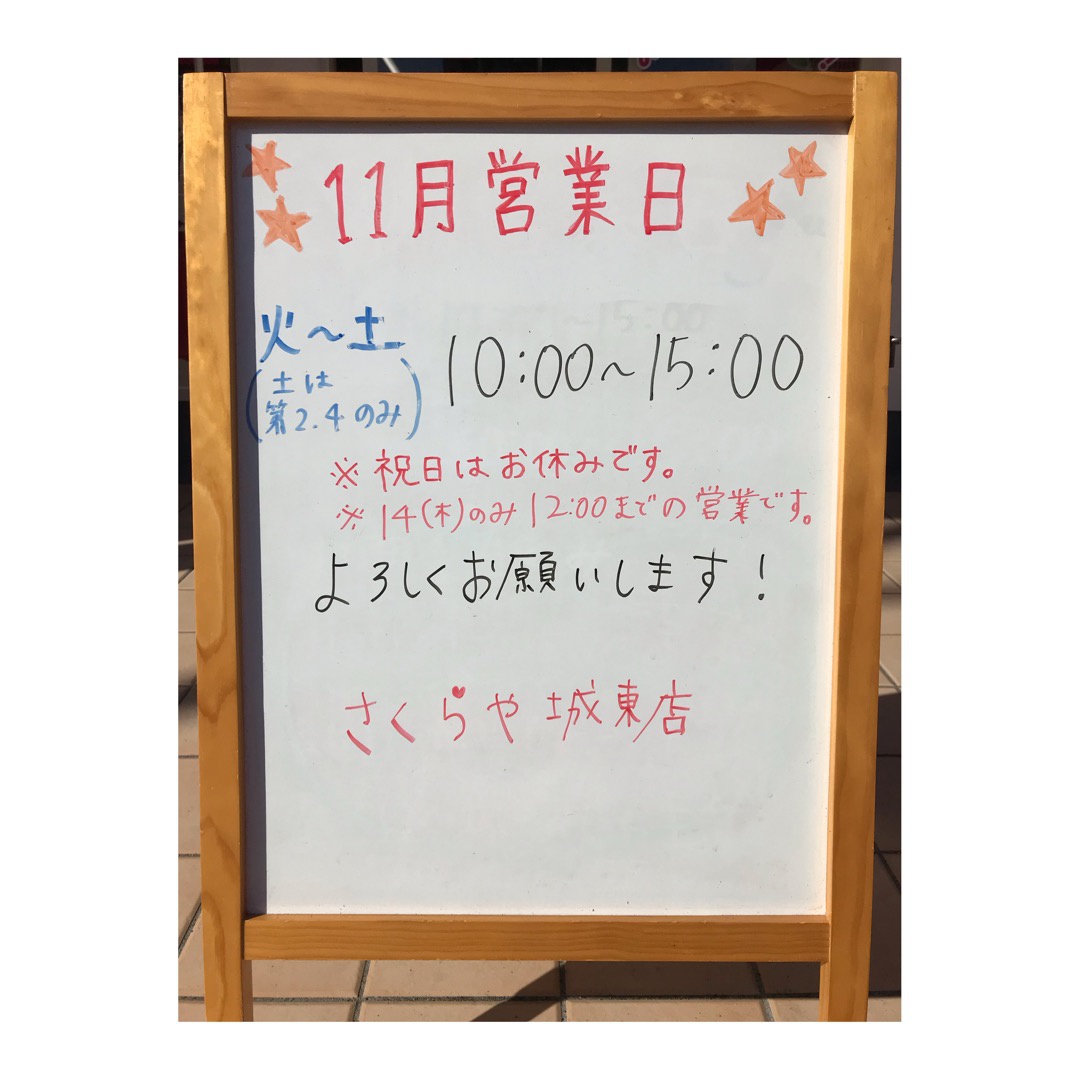 11月営業日
火～土
(土は
第2.4のみ)
10:00～15:00
※祝日はお休みです。
※14(木)のみ12:00までの営業です。
よろしくお願いします!
さくらや 城東店